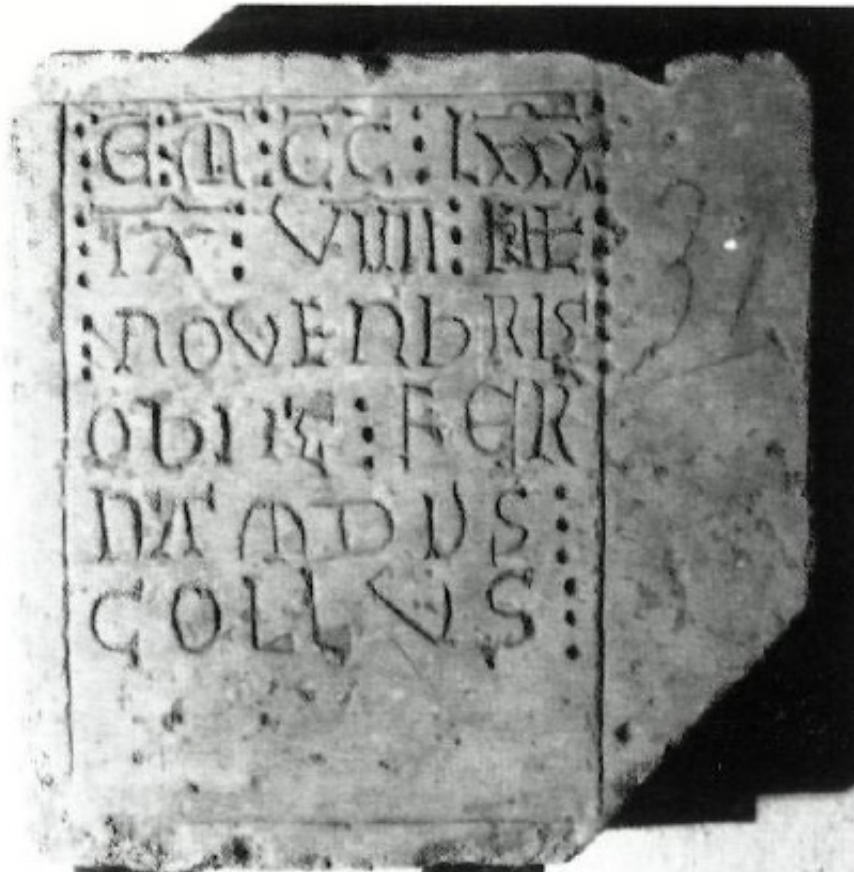 ⁝ E ⁝ M ⁝ CC ⁝ LXXX ⁝
TA ⁝ VIIII ⁝ KL ⁝
⁝ NOVENBRIS ⁝
OBIIT ⁝ FER
NAMDUS ⁝
GOLLVS ⁝